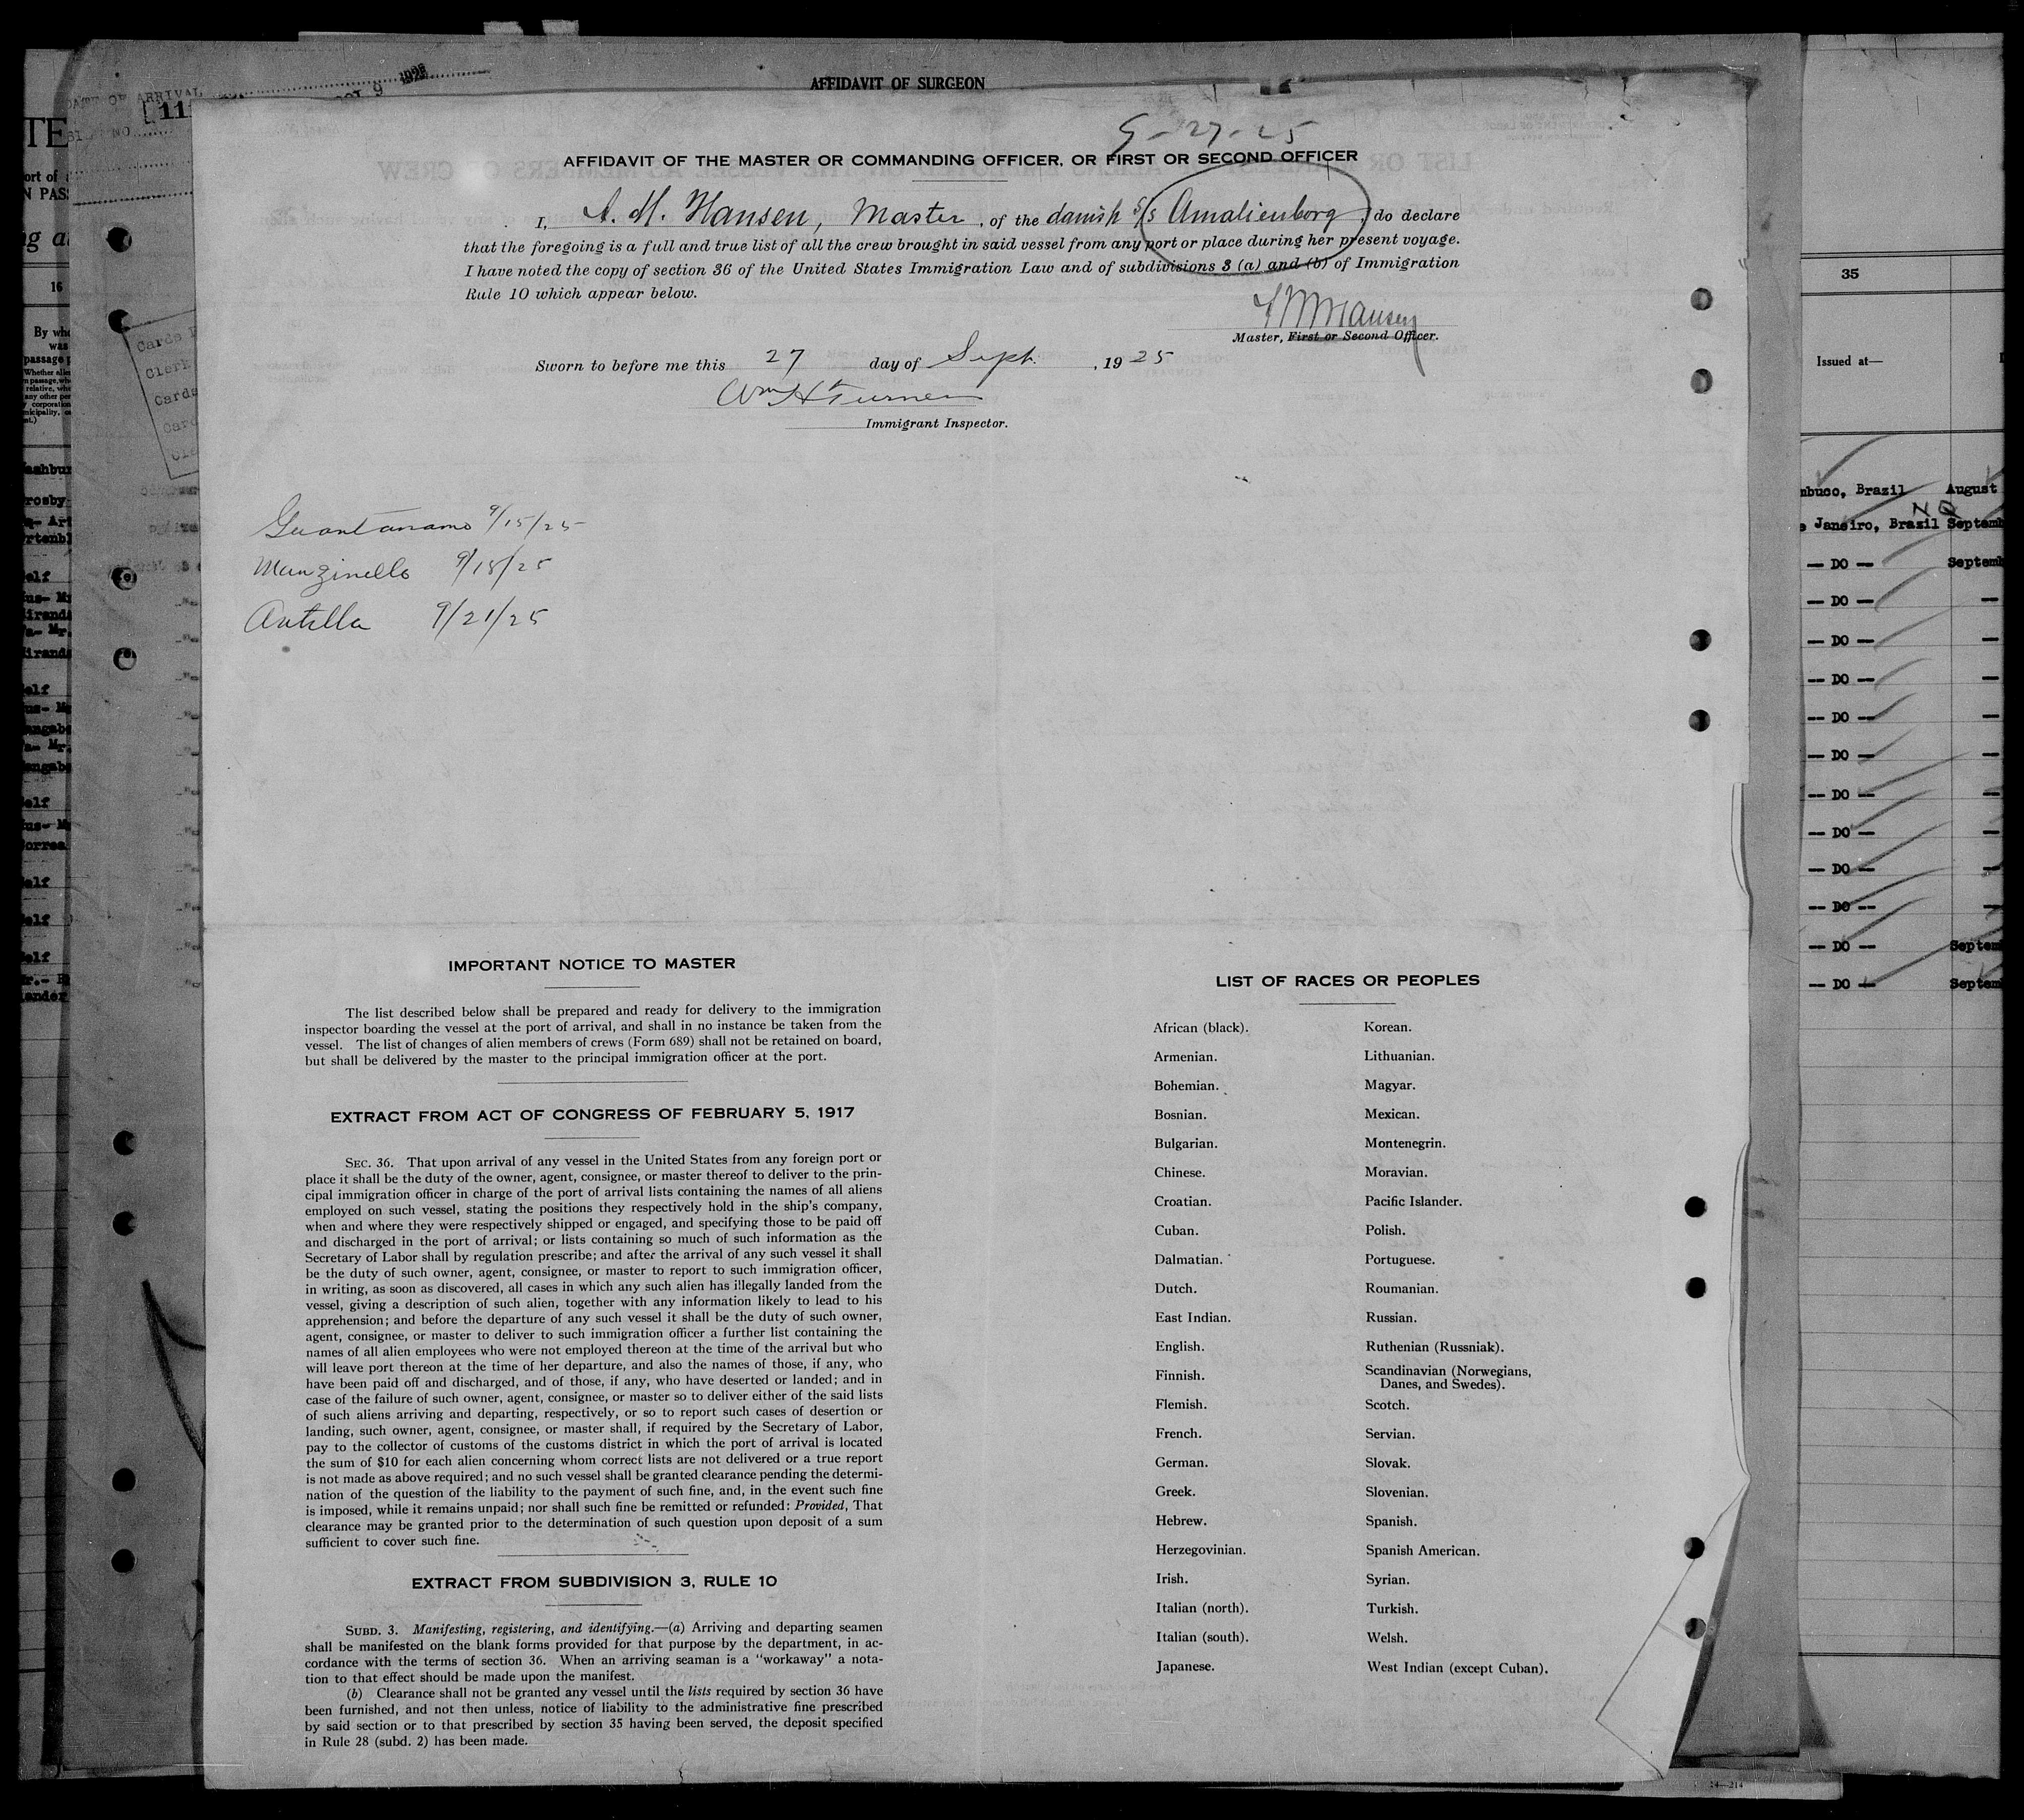 AFFIDAVIT OF SURGEON
DATE OF ARRIVAL
1925
9-27-25
AFFIDAVIT OF THE MASTER OR COMMANDING OFFICER, OR FIRST OR SECOND OFFICER
I, A. M. Hansen, Master, of the danish S/S Amalienborg, do declare
that the foregoing is a full and true list of all the crew brought in said vessel from any port or place during her present voyage.
I have noted the copy of section 36 of the United States Immigration Law and of subdivisions 3 (a) and (b) of Immigration
Rule 10 which appear below.
Hansen
Master, First or Second Officer.
Sworn to before me this 27 day of Sept., 1925
Wm H Turner
Immigrant Inspector.
Guantanamo 9/15/25
Manzinello 9/18/25
Antilla 9/21/25
IMPORTANT NOTICE TO MASTER
The list described below shall be prepared and ready for delivery to the immigration
inspector boarding the vessel at the port of arrival, and shall in no instance be taken from the
vessel. The list of changes of alien members of crews (Form 689) shall not be retained on board,
but shall be delivered by the master to the principal immigration officer at the port.
EXTRACT FROM ACT OF CONGRESS OF FEBRUARY 5, 1917
SEC. 36. That upon arrival of any vessel in the United States from any foreign port or
place it shall be the duty of the owner, agent, consignee, or master thereof to deliver to the prin-
cipal immigration officer in charge of the port of arrival lists containing the names of all aliens
employed on such vessel, stating the positions they respectively hold in the ship's company,
when and where they were respectively shipped or engaged, and specifying those to be paid off
and discharged in the port of arrival; or lists containing so much of such information as the
Secretary of Labor shall by regulation prescribe; and after the arrival of any such vessel it shall
be the duty of such owner, agent, consignee, or master to report to such immigration officer,
in writing, as soon as discovered, all cases in which any such alien has illegally landed from the
vessel, giving a description of such alien, together with any information likely to lead to his
apprehension; and before the departure of any such vessel it shall be the duty of such owner,
agent, consignee, or master to deliver to such immigration officer a further list containing the
names of all alien employees who were not employed thereon at the time of the arrival but who
will leave port thereon at the time of her departure, and also the names of those, if any, who
have been paid off and discharged, and of those, if any, who have deserted or landed; and in
case of the failure of such owner, agent, consignee, or master so to deliver either of the said lists
of such aliens arriving and departing, respectively, or so to report such cases of desertion or
landing, such owner, agent, consignee, or master shall, if required by the Secretary of Labor,
pay to the collector of customs of the customs district in which the port of arrival is located
the sum of $10 for each alien concerning whom correct lists are not delivered or a true report
is not made as above required; and no such vessel shall be granted clearance pending the determi-
nation of the question of the liability to the payment of such fine, and, in the event such fine
is imposed, while it remains unpaid; nor shall such fine be remitted or refunded: Provided, That
clearance may be granted prior to the determination of such question upon deposit of a sum
sufficient to cover such fine.
EXTRACT FROM SUBDIVISION 3, RULE 10
SUBD. 3. Manifesting, registering, and identifying.—(a) Arriving and departing seamen
shall be manifested on the blank forms provided for that purpose by the department, in ac-
cordance with the terms of section 36. When an arriving seaman is a "workaway" a nota-
tion to that effect should be made upon the manifest.
(b) Clearance shall not be granted any vessel until the lists required by section 36 have
been furnished, and not then unless, notice of liability to the administrative fine prescribed
by said section or to that prescribed by section 35 having been served, the deposit specified
in Rule 28 (subd. 2) has been made.
LIST OF RACES OR PEOPLES
African (black). Korean.
Armenian. Lithuanian.
Bohemian. Magyar.
Bosnian. Mexican.
Bulgarian. Montenegrin.
Chinese. Moravian.
Croatian. Pacific Islander.
Cuban. Polish.
Dalmatian. Portuguese.
Dutch. Roumanian.
East Indian. Russian.
English. Ruthenian (Russniak).
Finnish. Scandinavian (Norwegians,
Danes, and Swedes).
Flemish. Scotch.
French. Servian.
German. Slovak.
Greek. Slovenian.
Hebrew. Spanish.
Herzegovinian. Spanish American.
Irish. Syrian.
Italian (north). Turkish.
Italian (south). Welsh.
Japanese. West Indian (except Cuban).
35
Issued at—
Brazil August
Janeiro, Brazil
— DO —
— DO —
— DO —
— DO —
— DO —
— DO —
— DO —
— DO —
— DO —
— DO —
— DO —
— DO —
14—214